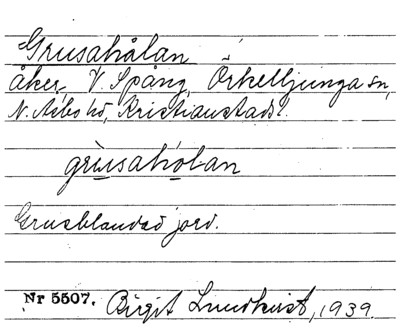 Grusahålan
åker, V. Spång, Örkelljunga sn,
N. Åsbo hd, Kristianstads l.
grusaholan
Grusblandad jord.
Nr 5507. Birgit Lundkvist, 1939.